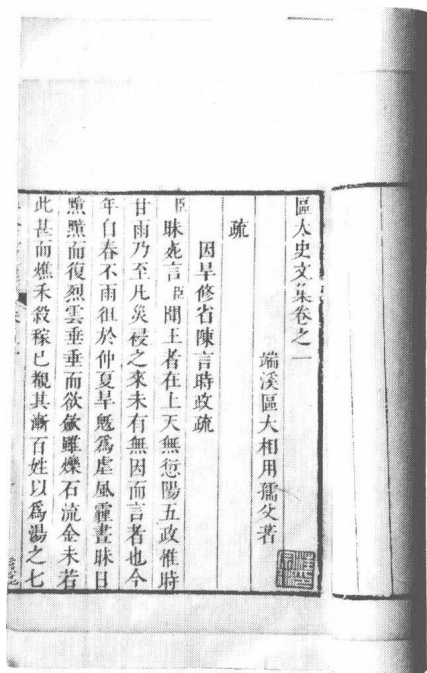 區太史文集卷之一
端溪區大相用孺父著
疏
因旱修省陳言時政疏
臣昧死言臣聞王者在上天無愆陽五政惟時
甘雨乃至凡災祲之來未有無因而言者也今
年自春不雨徂於仲夏旱魃爲虐風霾晝昧日
黯黯而復烈雲垂垂而欲斂雖爍石流金未若
此甚而燋禾殺稼已覩其漸百姓以爲湯之七